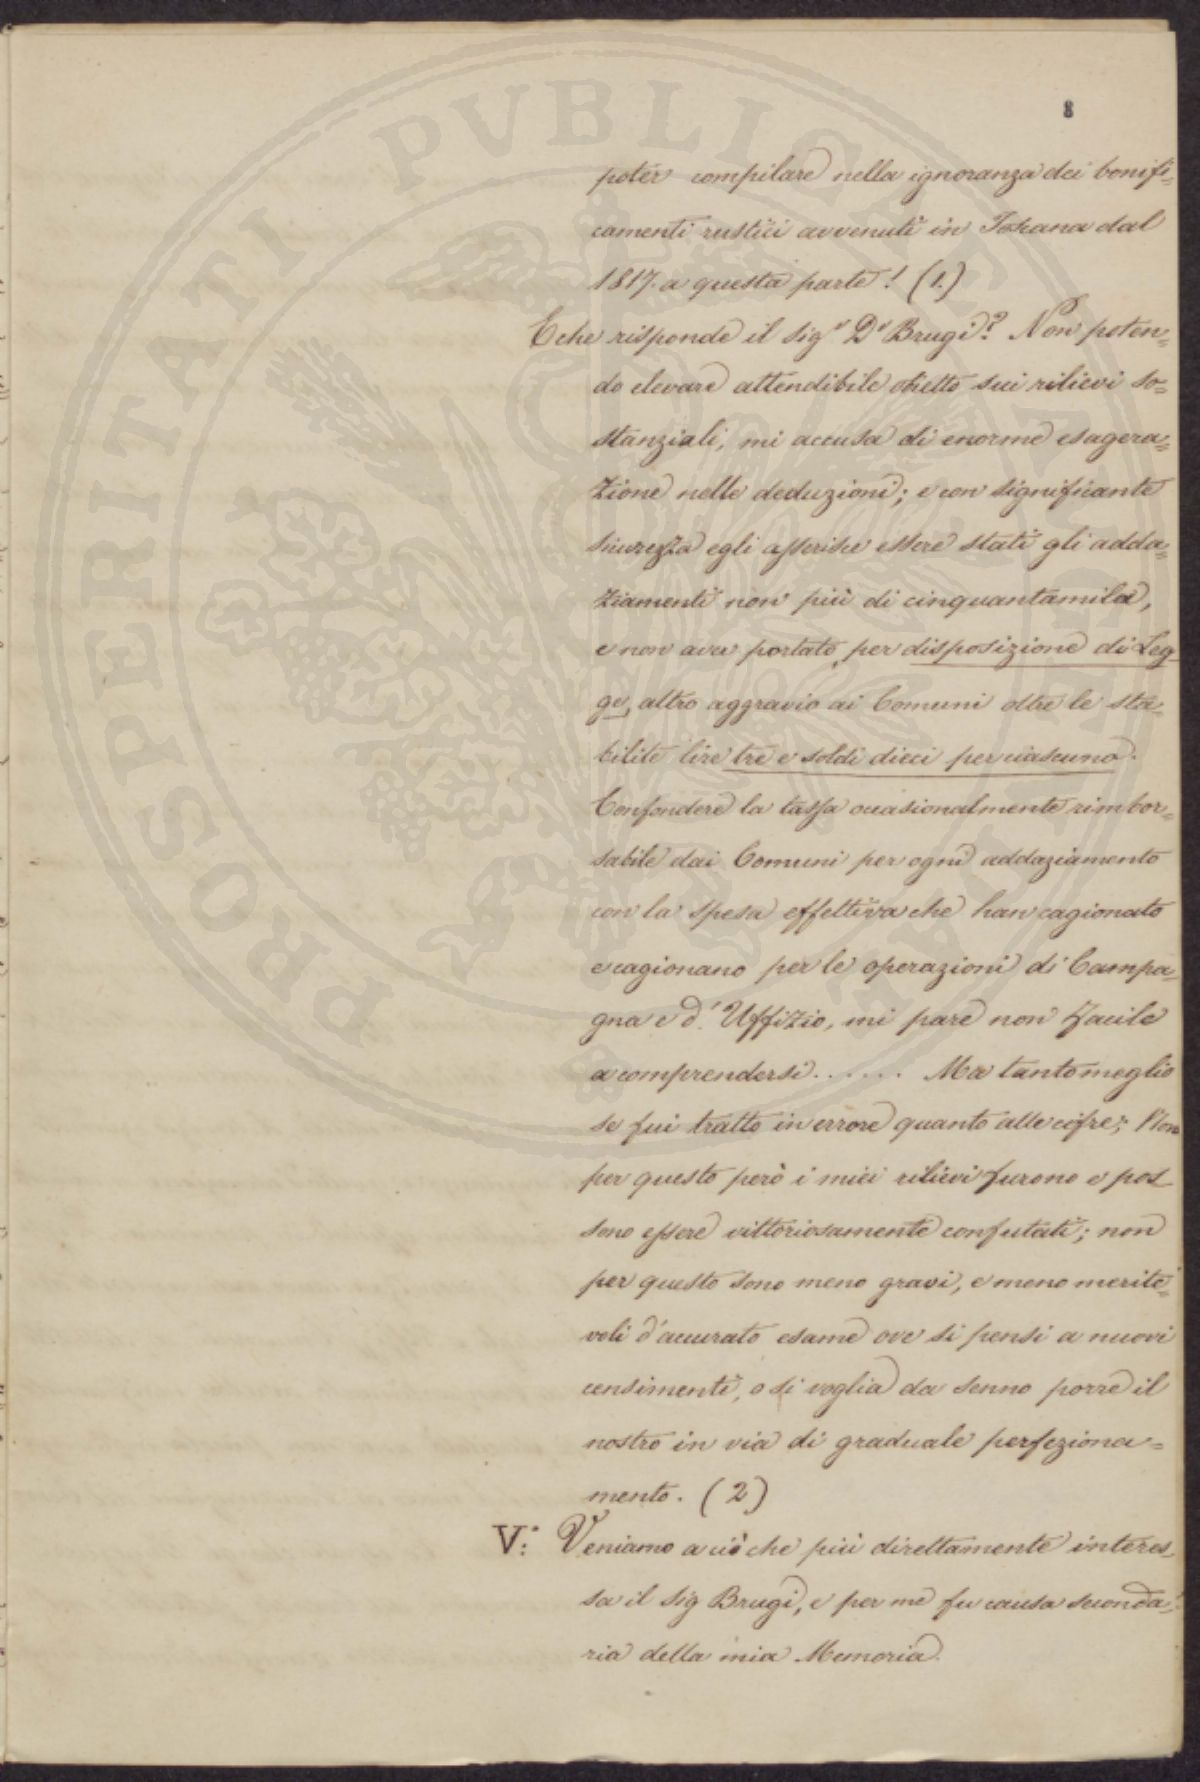 8
poter compilare nella ignoranza dei bonifi=
camenti rustici avvenuti in Toscana dal
1817. a questa parte! (1.)
E che risponde il Sigr Dr Brugi? Non poten=
do elevare attendibile obietto sui rilievi so=
stanziali, mi accusa di enorme esagera=
zione nelle deduzioni; e con significante
sicurezza egli asserisce essere stati gli adda=
ziamenti non più di cinquantamila,
e non aver portato, per disposizione di Leg=
ge, altro aggravio ai Comuni oltre le sta=
bilite lire tre e soldi dieci per ciascuno.
Confondere la tassa occasionalmente rimbor=
sabile dai Comuni per ogni addaziamento
con la spesa effettiva che han cagionato
e cagionano per le operazioni di Campa=
gna e d'Uffizio, mi pare non facile
a comprendersi....... Ma tanto meglio
se fui tratto in errore quanto alle cifre; Non
per questo però i miei rilievi furono e pos=
sono essere vittoriosamente confutati; non
per questo sono meno gravi, e meno merite=
voli d'accurato esame ove si pensi a nuovi
censimenti, o si voglia da senno porre il
nostro in via di graduale perfeziona=
mento. (2)
V.° Veniamo a ciò che più direttamente interes=
sa il Sig Brugi, e per me fu causa seconda=
ria della mia Memoria.
PROSPERITATI PVBLICAE AVGENDAE